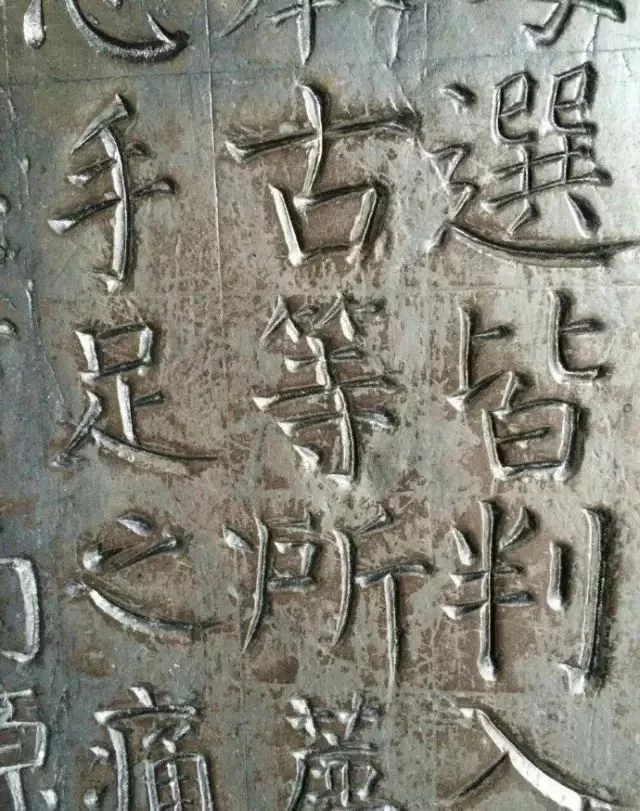 選皆判入
古等所
手足之痛